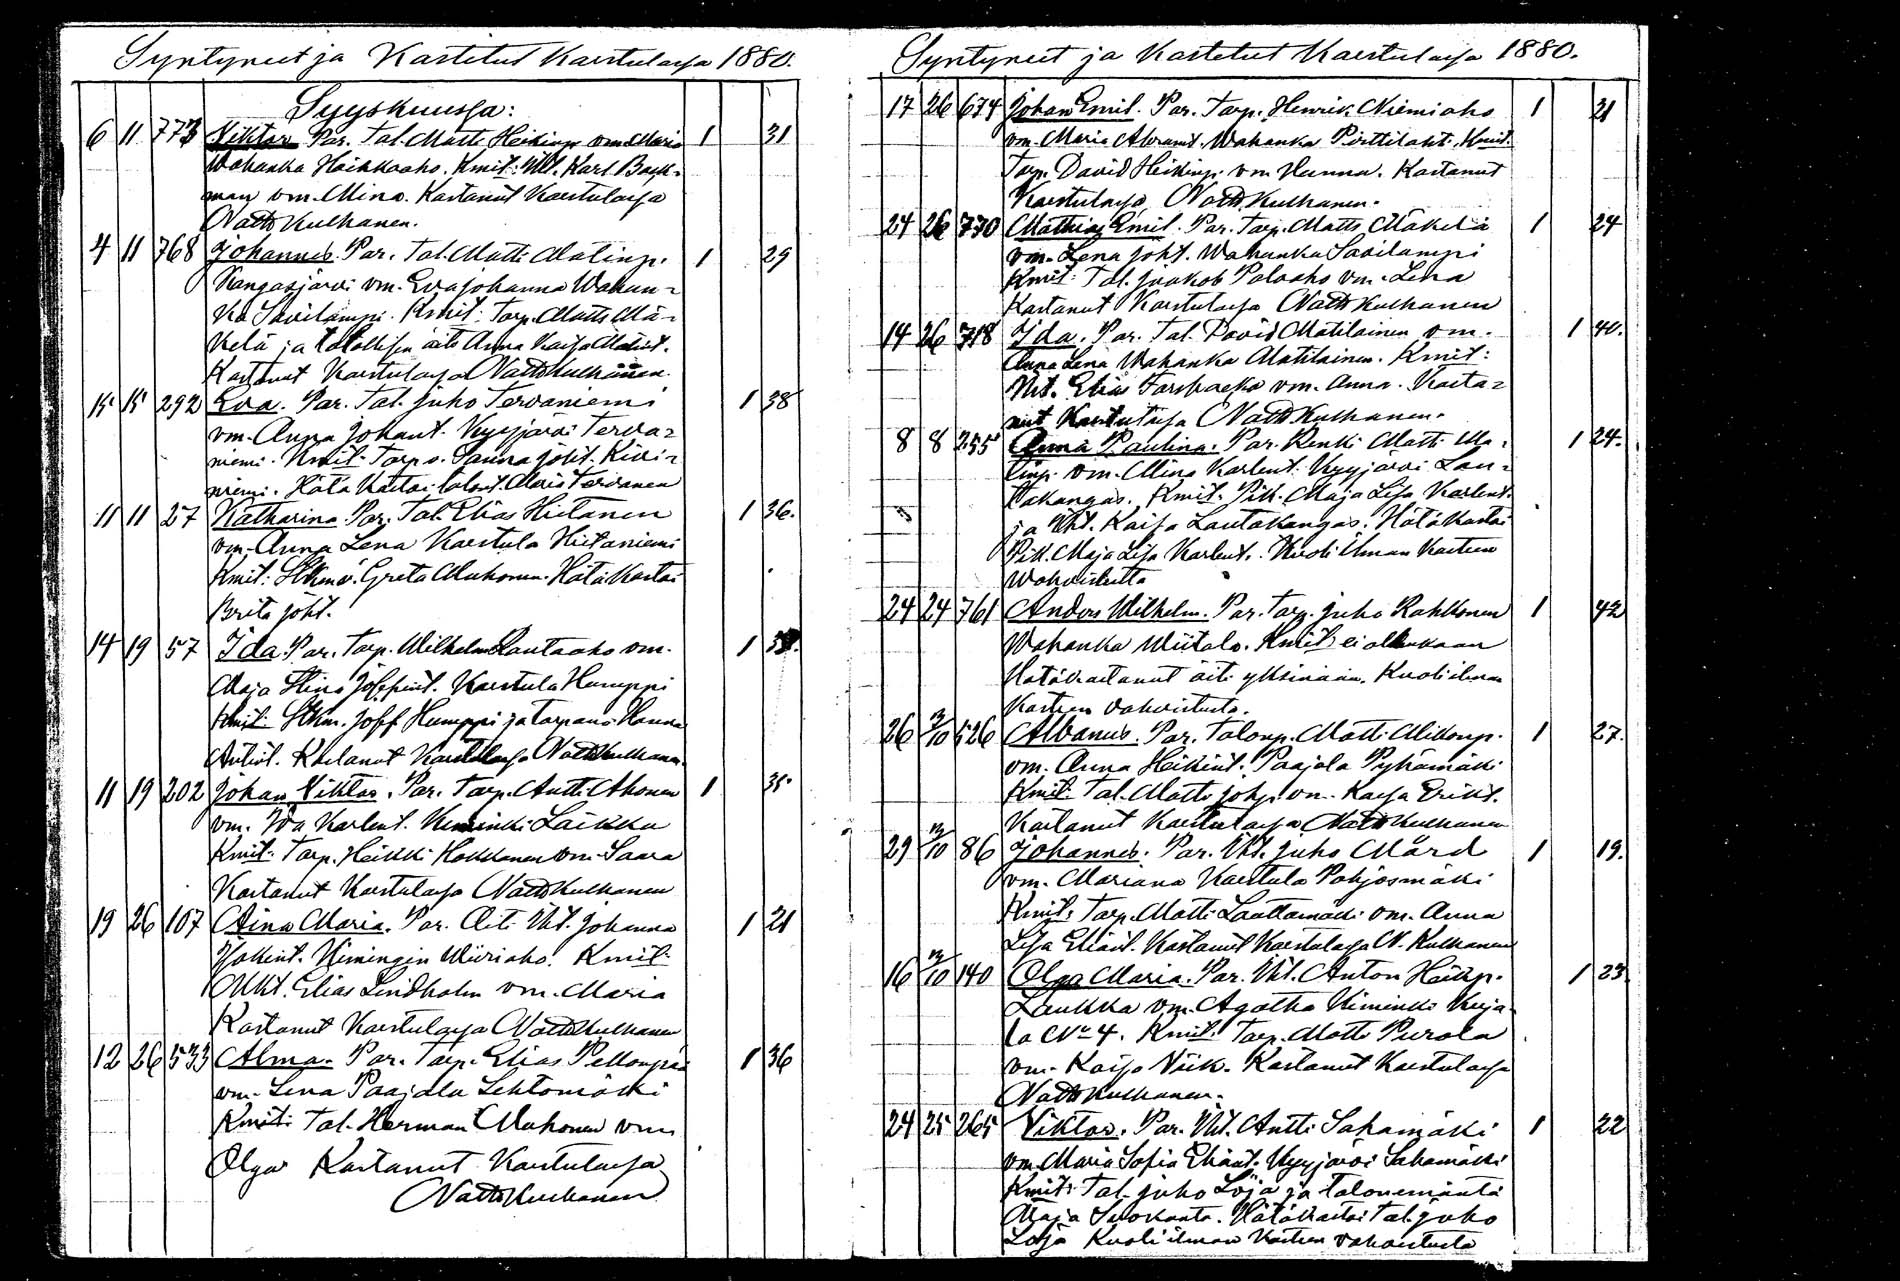 Syntyneet ja Kastetut Karstulassa 1880.
Syyskuussa:
6 11 773 Viktor Par. Tal. Matti Heikinp. vm. Maria 1 31
Wahanka Heikkaaho. Kmit: Vkt. Karl Back-
man vm. Mina. Kastanut Karstulassa
Natth Kulhanen.
4 11 768 Johannes. Par. Tal. Matti Matinp. 1 29
Kangasjärvi vm. Eva Johanna Wahan-
ka Savilampi. Kmit: Torp. Matts Mä-
kelä ja talollisen äiti Anna Kaisa Matist.
Kastanut Karstulassa Natth Kulhanen.
15 15 292 Eva. Par. Tal. Juho Tervaniemi 1 38
vm. Anna Johant. Kyyjärvi Terva-
niemi. Kmit: Torp. s. Sanna Joht. Kivi-
niemi. Hätä Kastoi talont. Maria Tervanen
11 11 27 Katharina Par. Tal. Elias Hietanen 1 36.
vm. Anna Lena Karstula Hietaniemi
Kmit: Greta Muhonen. Hätä Kastoi
Brita Joht.
14 19 57 Ida. Par. Torp. Wilhelm Rautaaho vm. 1
Maja Stina Josefint. Karstula Humppi
Kmit: Jos. Humppi ja torparis Hanna
Antint. Kastanut Karstulassa Natth Kulhanen.
11 19 202 Johan Viktor. Par. Torp. Antti Ahonen 1 35
vm. Ida Karlent. Kiminki Laikka
Kmit: Torp. Heikki Hokkanen vm. Saara
Kastanut Karstulassa Natth Kulhanen
19 26 107 Aina Maria. Par. Äiti Vkt. Johanna 1 21
Jokint. Kimingin Wiiriaho. Kmit:
Mkt. Elias Lindholm vm. Maria
Kastanut Karstulassa Natth Kulhanen
12 26 533 Alma. Par. Torp. Elias Pellonpää 1 36
vm. Lena Paajala Lehtomäki
Kmit: Tal. Herman Muhonen vm.
Olga Kastanut Karstulassa
Natth Kulhanen
Syntyneet ja Kastetut Karstulassa 1880.
17 26 674 Johan Emil. Par. Torp. Henrik Niemiaho 1 21
vm. Maria Abramt. Wahanka Pirttilahti. Kmit:
Torp. David Heikinp. vm. Hanna. Kastanut
Karstulassa Natth Kulhanen.
24 26 770 Mathias Emil. Par. Torp. Matts Mäkelä 1 24
vm. Lena Joht. Wahanka Savilampi
Kmit: Tal. Jaakob Paloaho vm. Lena
Kastanut Karstulassa Natth Kulhanen
14 26 718 Ida. Par. Tal. David Matilainen vm. 1 40.
Anna Lena Wahanka Matilainen. Kmit:
Vkt. Elias Forsbacka vm. Anna. Kasta-
nut Karstulassa Natth Kulhanen.
8 8 255 Anna Paulina. Par. Renki Matti Ma- 1 24.
tinp. vm. Mina Karlent. Kyyjärvi Lau-
takangas. Kmit: Piik. Maja Lisa Karlent.
ja Vkt. Kaisa Lautakangas. Hätä Kastoi
Piik. Maja Lisa Karlent. Kuoli Ilman Kasteen
Wahvistutta
24 24 761 Anders Wilhelm. Par. Torp. Juho Rahkonen 1 42
Wahanka Wiitala. Kmit: ei ollukaan
Hätäkastanut äiti yksinään. Kuoli ilman
Kasteen vahvistusta.
26 3/10 526 Albanus. Par. Talonp. Matti Mikonp. 1 27.
vm. Anna Heikint. Paajala Pyhämäki
Kmit: Tal. Matti Johp. vm. Kaisa Erikt.
Kastanut Karstulassa Natth Kulhanen
29 3/10 86 Johannes. Par. Vkt. Juho Mård 1 19.
vm. Mariana Karstula Pohjosmäki
Kmit: Torp. Matti Lauttamäki vm. Anna
Lisa Eliant. Kastanut Karstulassa N. Kulhanen
16 3/10 140 Olga Maria. Par. Vkt. Anton Heikp. 1 23.
Laukka vm. Agatha Kiminki Kuja-
la No 4. Kmit: Torp. Matti Purola
vm. Kaisa Viik. Kastanut Karstulassa
Natth Kulhanen.
24 25 265 Viktor. Par. Vkt. Antti Sahamäki 1 22
vm. Maria Sofia Eliant. Kyyjärvi Sahamäki
Kmit: Tal. Juho Löja ja talonemäntä
Maja Suokanta. Hätäkastoi tal. Juho
Löja Kuoli ilman Kasteen vahvistusta